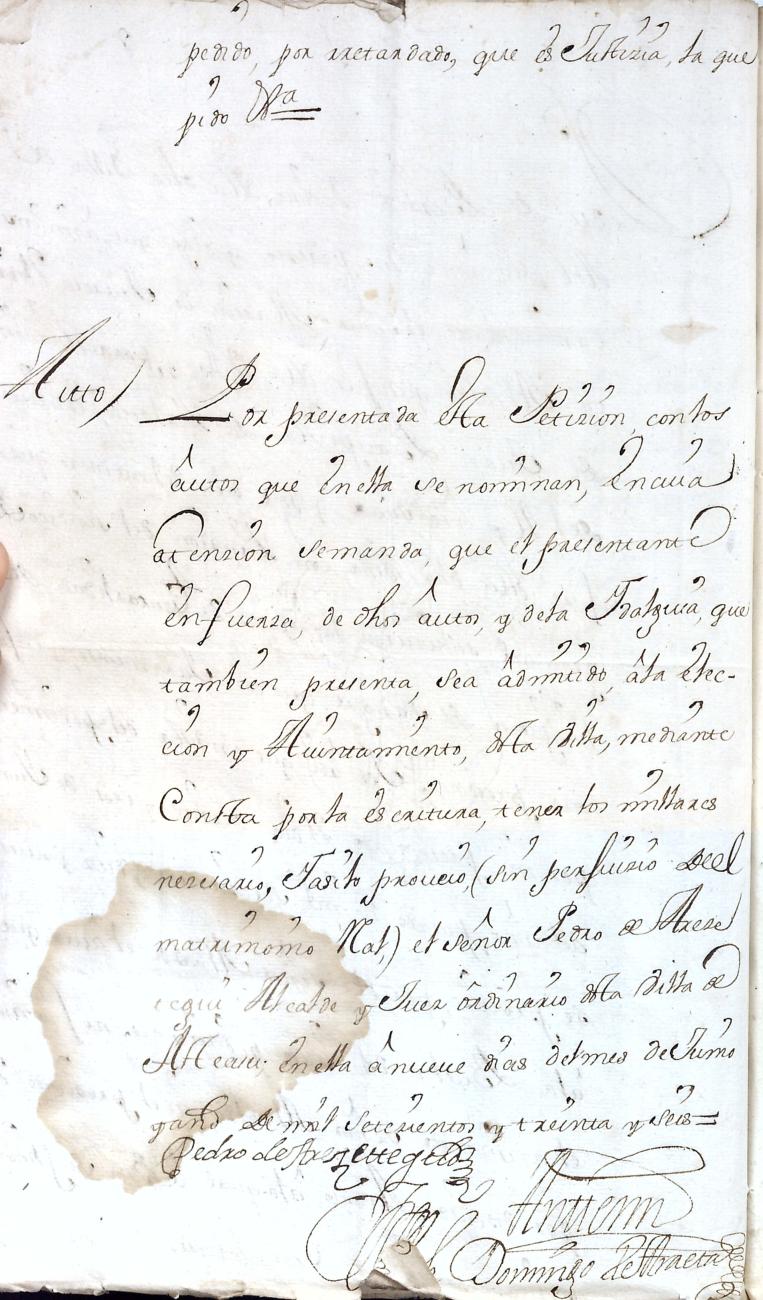 pedido, por rretardado, que es Justizia, la que
pido
Autto)
Por presentada esta Petizion, con los
autos que en ella se nominan, en cuia
atenzion se manda, que el presentante
en fuerza, de dhos autos, y de la Idalguia, que
tambien presenta, sea admitido, a la Elec-
cion y Aiuntamiento, desta Villa, mediante
Consta por la escritura, tener los millares
nezesario, I asi lo proveio, (sin perjuizio del
matrimonio Ral,) el señor Pedro de Areze
tegui Alcalde y Juez ordinario desta Villa de
en ella a nueve dias del mes de Junio
y año de mil setezientos y treinta y seis=
Pedro de Arezttegui
Anttemi
Domingo de